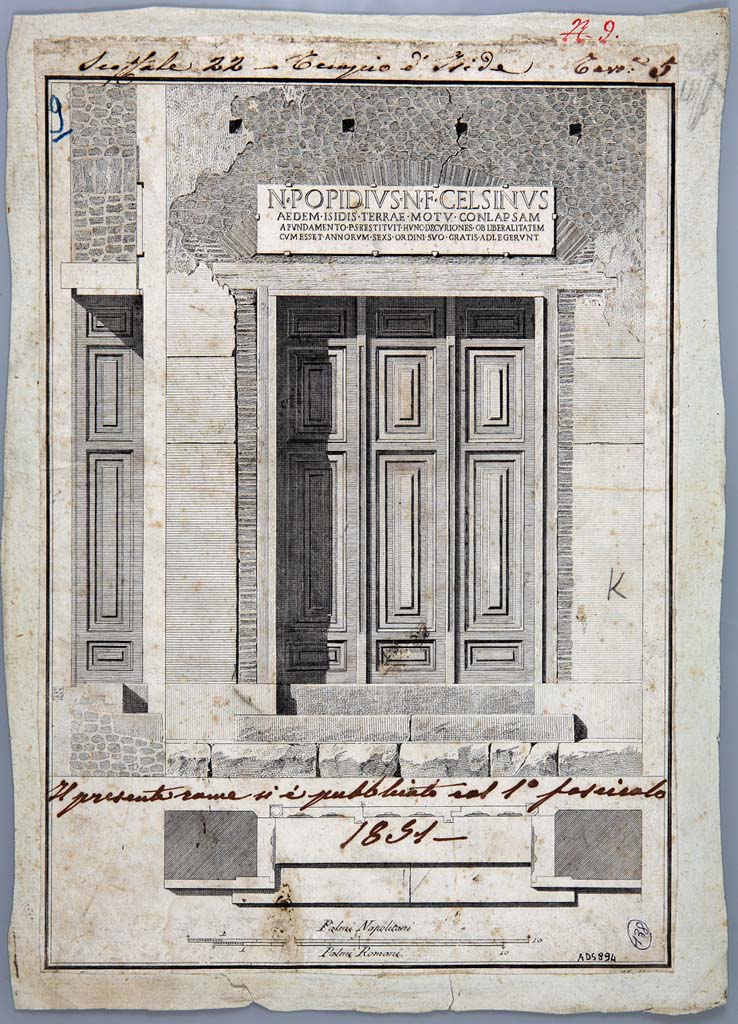 N 9.
Scaffale 22 - Tempio d'Iside Tavª 5
9
N·POPIDIVS·N·F·CELSINVS
AEDEM·ISIDIS·TERRAE·MOTV·CONLAPSAM
A FVNDAMENTO·P·S·RESTITVIT·HVNC·DECVRIONES·OB·LIBERALITATEM
CVM·ESSET·ANNORVM·SEXS·ORDINI·SVO·GRATIS·ADLEGERVNT
K
Il presente rame si è pubblicato col 1º fascicolo
1851-
Palmi Napolitani
10
Palmi Romani.
10
ADS894